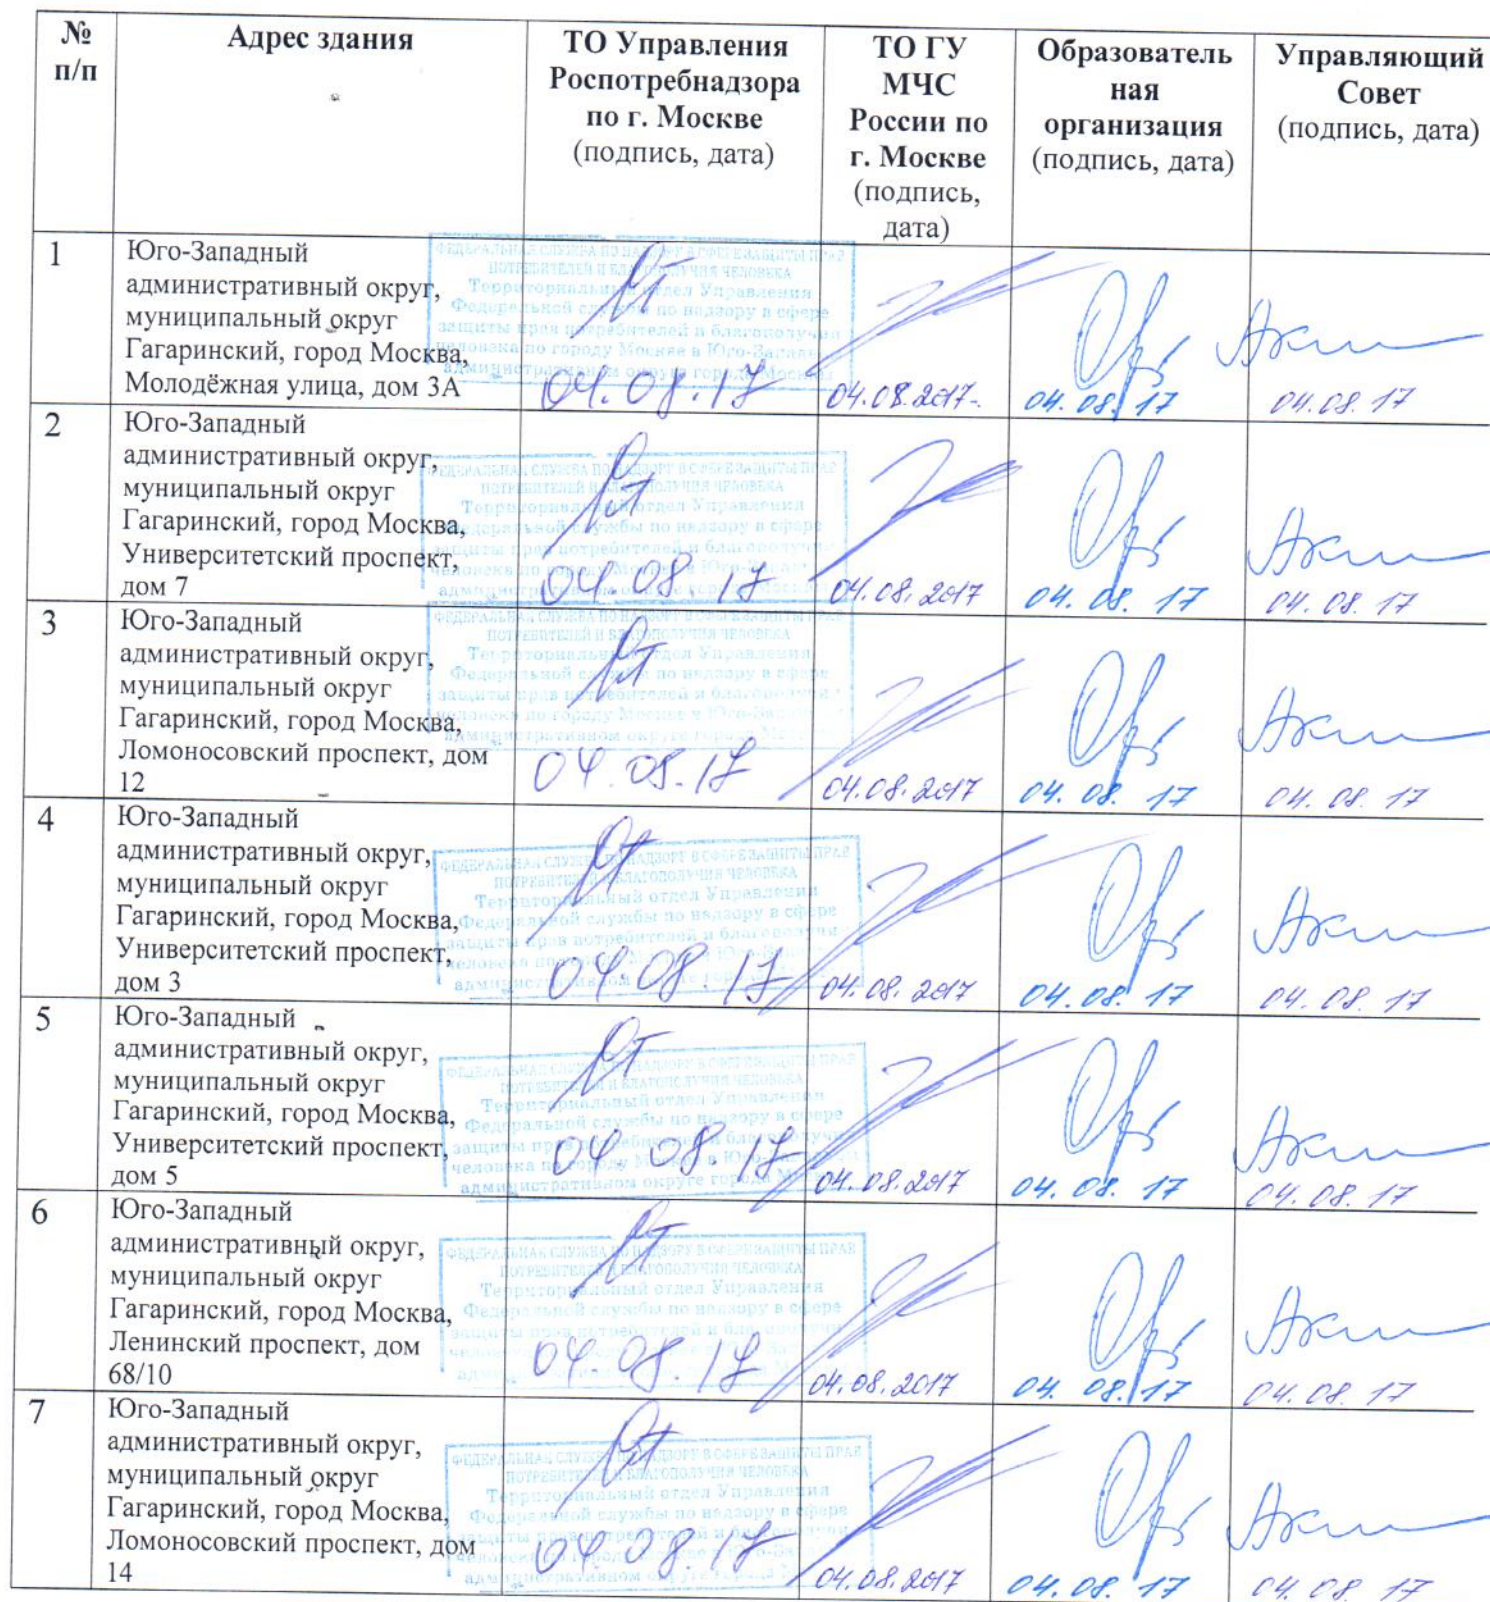 №
п/п
Адрес здания
ТО Управления
Роспотребнадзора
по г. Москве
(подпись, дата)
ТО ГУ
МЧС
России по
г. Москве
(подпись,
дата)
Образователь
ная
организация
(подпись, дата)
Управляющий
Совет
(подпись, дата)
1
Юго-Западный
административный округ,
муниципальный округ
Гагаринский, город Москва,
Молодёжная улица, дом 3А
ФЕДЕРАЛЬНАЯ СЛУЖБА ПО НАДЗОРУ В СФЕРЕ ЗАЩИТЫ ПРАВ
ПОТРЕБИТЕЛЕЙ И БЛАГОПОЛУЧИЯ ЧЕЛОВЕКА
Территориальный отдел Управления
Федеральной службы по надзору в сфере
защиты прав потребителей и благополучия
человека по городу Москве в Юго-Западном
административном округе города Москвы
04.08.17
04.08.2017
04.08.17
04.08.17
2
Юго-Западный
административный округ,
муниципальный округ
Гагаринский, город Москва,
Университетский проспект,
дом 7
ФЕДЕРАЛЬНАЯ СЛУЖБА ПО НАДЗОРУ В СФЕРЕ ЗАЩИТЫ ПРАВ
ПОТРЕБИТЕЛЕЙ И БЛАГОПОЛУЧИЯ ЧЕЛОВЕКА
Территориальный отдел Управления
Федеральной службы по надзору в сфере
защиты прав потребителей и благополучия
человека по городу Москве в Юго-Западном
административном округе города Москвы
04.08.17
04.08.2017
04.08.17
04.08.17
3
Юго-Западный
административный округ,
муниципальный округ
Гагаринский, город Москва,
Ломоносовский проспект, дом
12
ФЕДЕРАЛЬНАЯ СЛУЖБА ПО НАДЗОРУ В СФЕРЕ ЗАЩИТЫ ПРАВ
ПОТРЕБИТЕЛЕЙ И БЛАГОПОЛУЧИЯ ЧЕЛОВЕКА
Территориальный отдел Управления
Федеральной службы по надзору в сфере
защиты прав потребителей и благополучия
человека по городу Москве в Юго-Западном
административном округе города Москвы
04.08.17
04.08.2017
04.08.17
04.08.17
4
Юго-Западный
административный округ,
муниципальный округ
Гагаринский, город Москва,
Университетский проспект,
дом 3
ФЕДЕРАЛЬНАЯ СЛУЖБА ПО НАДЗОРУ В СФЕРЕ ЗАЩИТЫ ПРАВ
ПОТРЕБИТЕЛЕЙ И БЛАГОПОЛУЧИЯ ЧЕЛОВЕКА
Территориальный отдел Управления
Федеральной службы по надзору в сфере
защиты прав потребителей и благополучия
человека по городу Москве в Юго-Западном
административном округе города Москвы
04.08.17
04.08.2017
04.08.17
04.08.17
5
Юго-Западный
административный округ,
муниципальный округ
Гагаринский, город Москва,
Университетский проспект,
дом 5
ФЕДЕРАЛЬНАЯ СЛУЖБА ПО НАДЗОРУ В СФЕРЕ ЗАЩИТЫ ПРАВ
ПОТРЕБИТЕЛЕЙ И БЛАГОПОЛУЧИЯ ЧЕЛОВЕКА
Территориальный отдел Управления
Федеральной службы по надзору в сфере
защиты прав потребителей и благополучия
человека по городу Москве в Юго-Западном
административном округе города Москвы
04.08.17
04.08.2017
04.08.17
04.08.17
6
Юго-Западный
административный округ,
муниципальный округ
Гагаринский, город Москва,
Ленинский проспект, дом
68/10
ФЕДЕРАЛЬНАЯ СЛУЖБА ПО НАДЗОРУ В СФЕРЕ ЗАЩИТЫ ПРАВ
ПОТРЕБИТЕЛЕЙ И БЛАГОПОЛУЧИЯ ЧЕЛОВЕКА
Территориальный отдел Управления
Федеральной службы по надзору в сфере
защиты прав потребителей и благополучия
04.08.17
04.08.2017
04.08.17
04.08.17
7
Юго-Западный
административный округ,
муниципальный округ
Гагаринский, город Москва,
Ломоносовский проспект, дом
14
ФЕДЕРАЛЬНАЯ СЛУЖБА ПО НАДЗОРУ В СФЕРЕ ЗАЩИТЫ ПРАВ
ПОТРЕБИТЕЛЕЙ И БЛАГОПОЛУЧИЯ ЧЕЛОВЕКА
Территориальный отдел Управления
Федеральной службы по надзору в сфере
защиты прав потребителей и благополучия
человека по городу Москве в Юго-Западном
административном округе города
04.08.17
04.08.2017
04.08.17
04.08.17